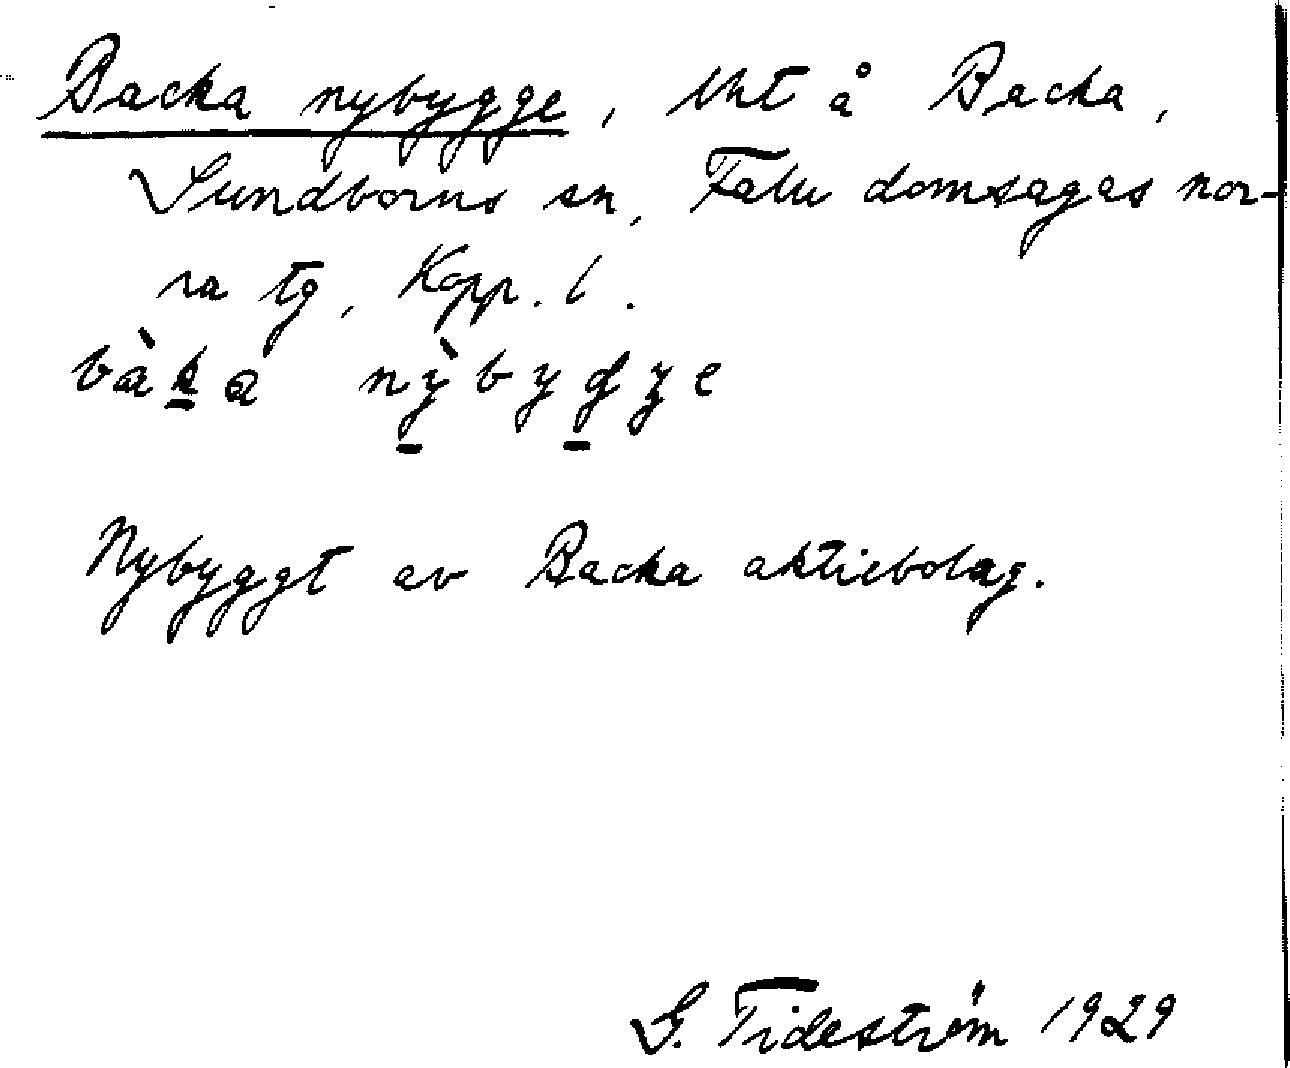 Backa nybygge, lht å Backa,
Sundborns sn, Falu domsagas nor-
ra tg, Kopp. l.
bàka nỳbygʒe
Nybyggt av Backa aktiebolag.
G. Tideström 1929